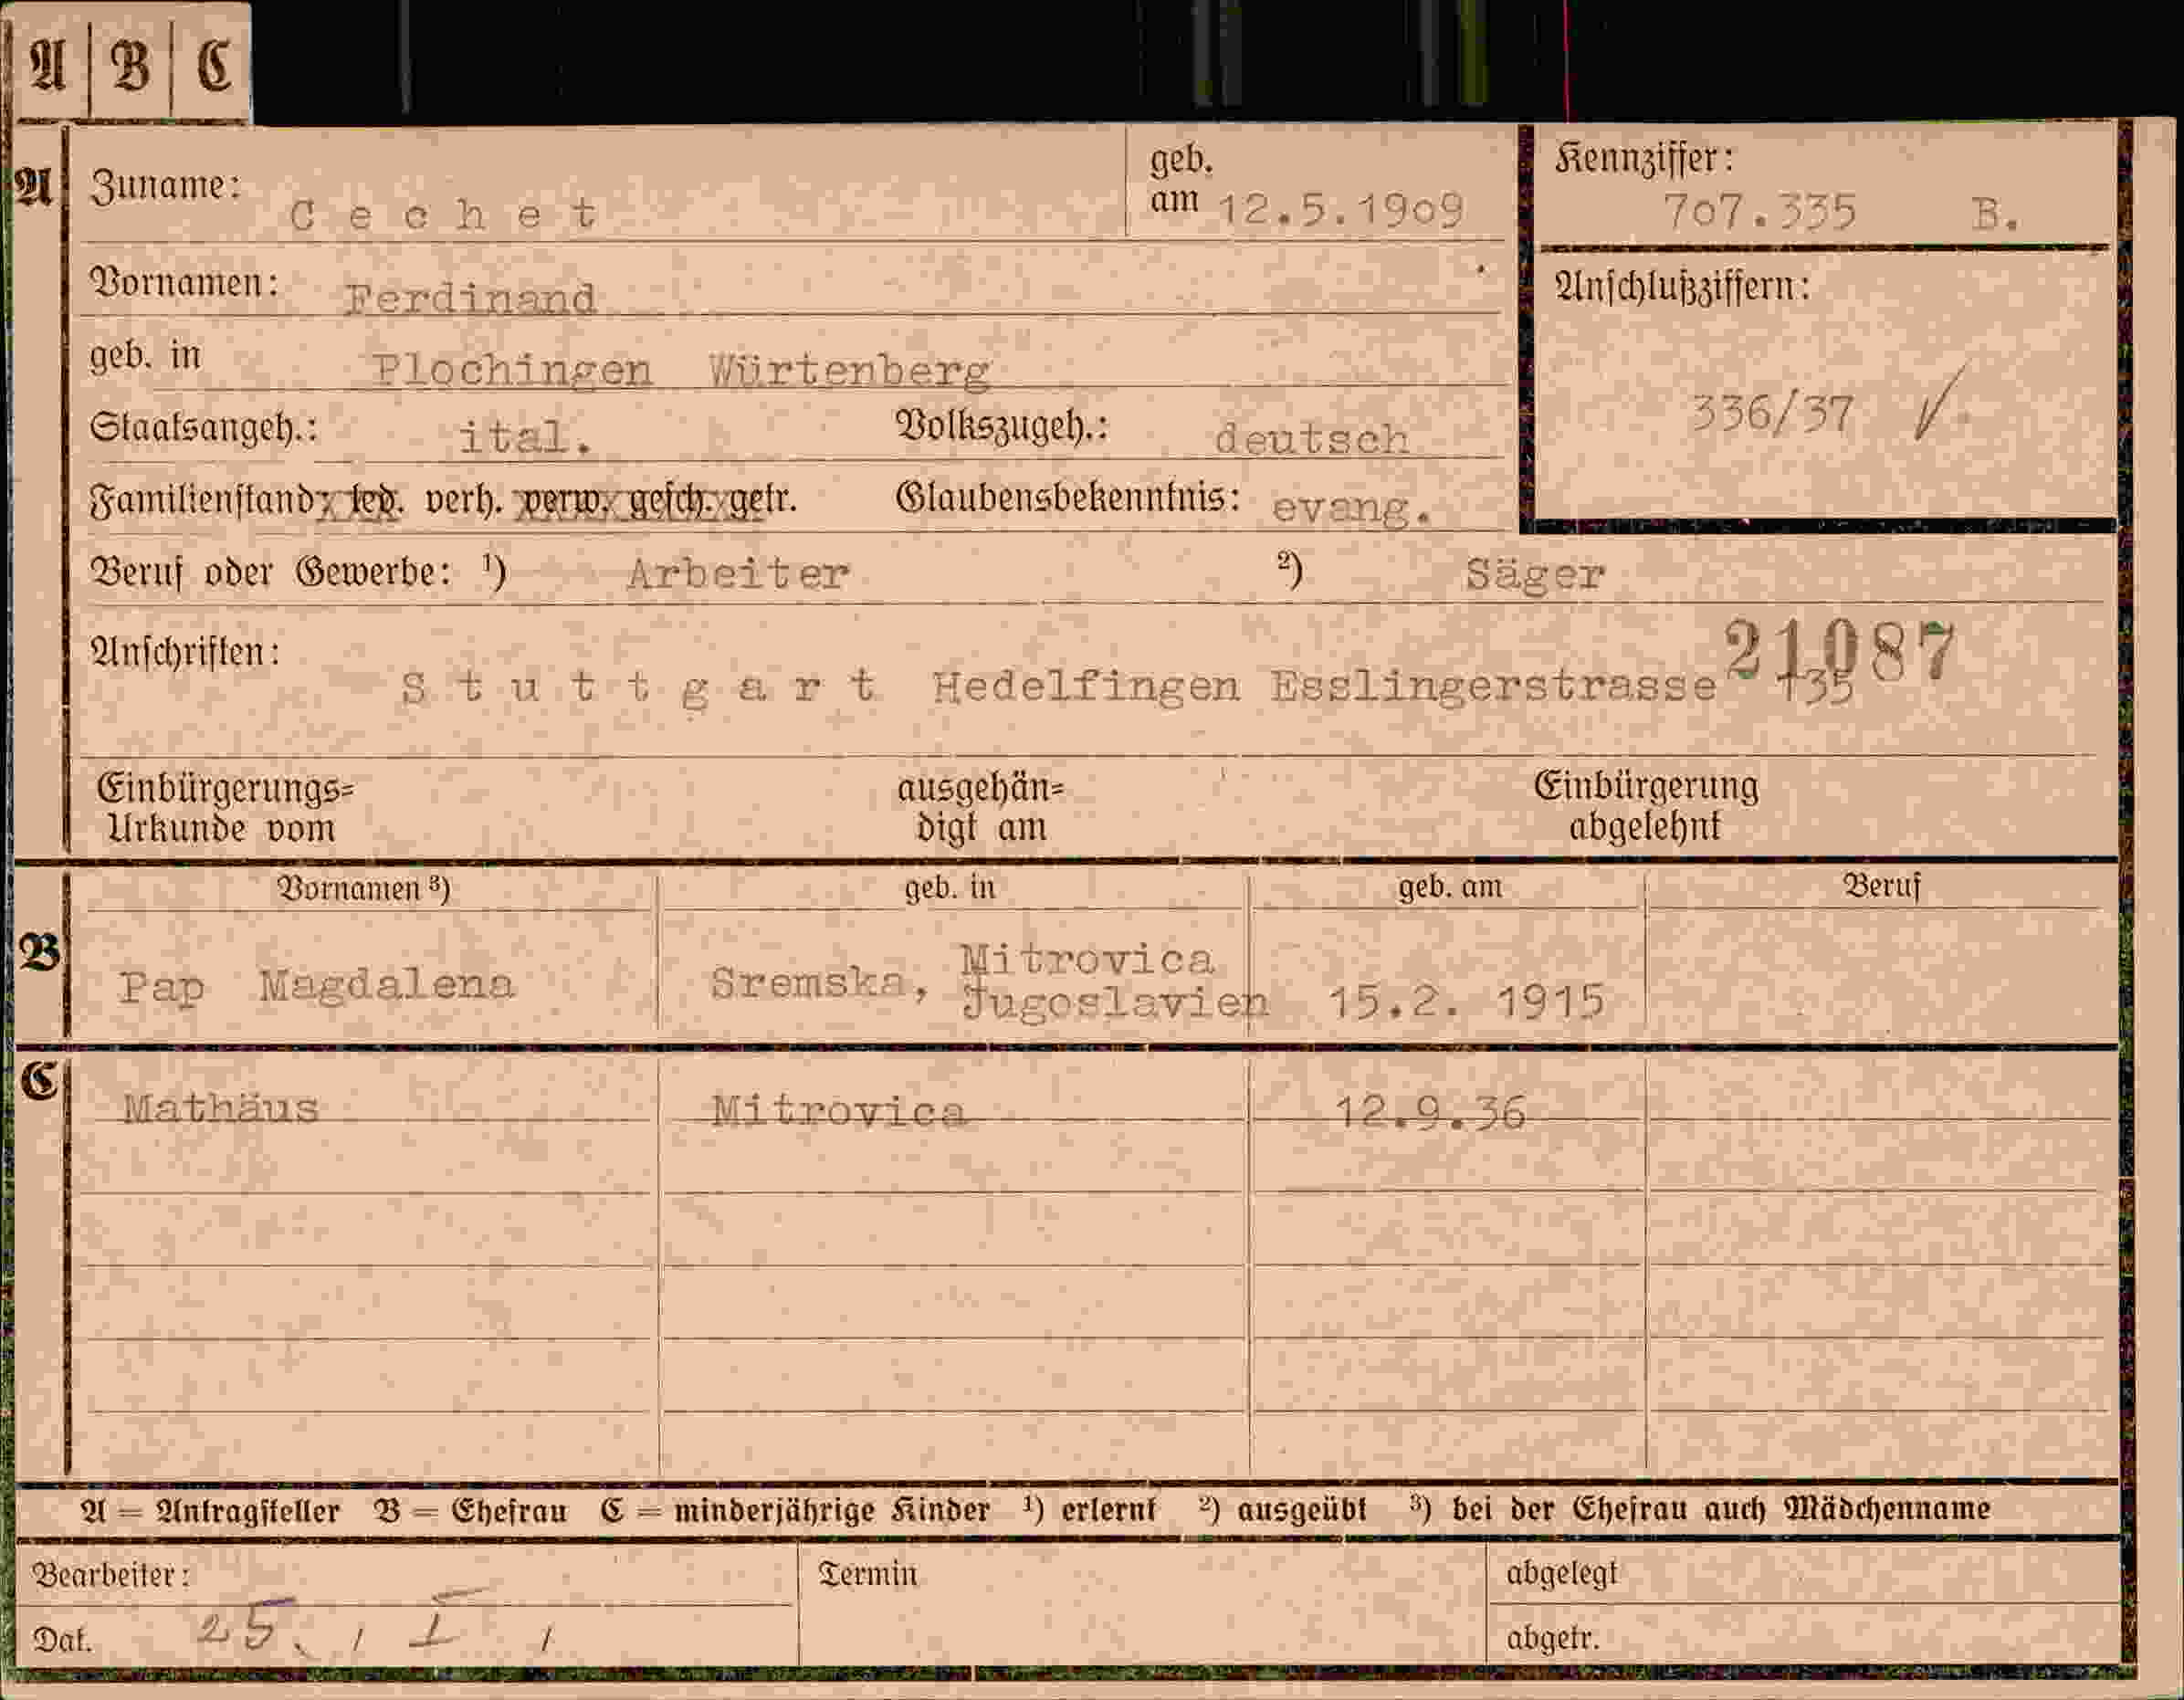 A B C
A Zuname: Cechet geb. am 12.5.1909
Kennziffer: 707.335 B.
Vornamen: Ferdinand
Anschlußziffern:
336/37
geb. in Plochingen Würtenberg
Staatsangeh.: ital. Volkszugeh.: deutsch
Familienstand: led. verh. verw. gesch. getr. Glaubensbekenntnis: evang.
Beruf oder Gewerbe: ¹) Arbeiter ²) Säger
21087
Anschriften: Stuttgart Hedelfingen Esslingerstrasse 135
Einbürgerungs= ausgehän= Einbürgerung
Urkunde vom digt am abgelehnt
Vornamen ³) geb. in geb. am Beruf
B Pap Magdalena Sremska, Mitrovica Jugoslavien 15.2. 1915
C Mathäus Mitrovica 12.9.36
A = Antragsteller B = Ehefrau C = minderjährige Kinder ¹) erlernt ²) ausgeübt ³) bei der Ehefrau auch Mädchenname
Bearbeiter: Termin abgelegt
Dat. 25. I abgetr.